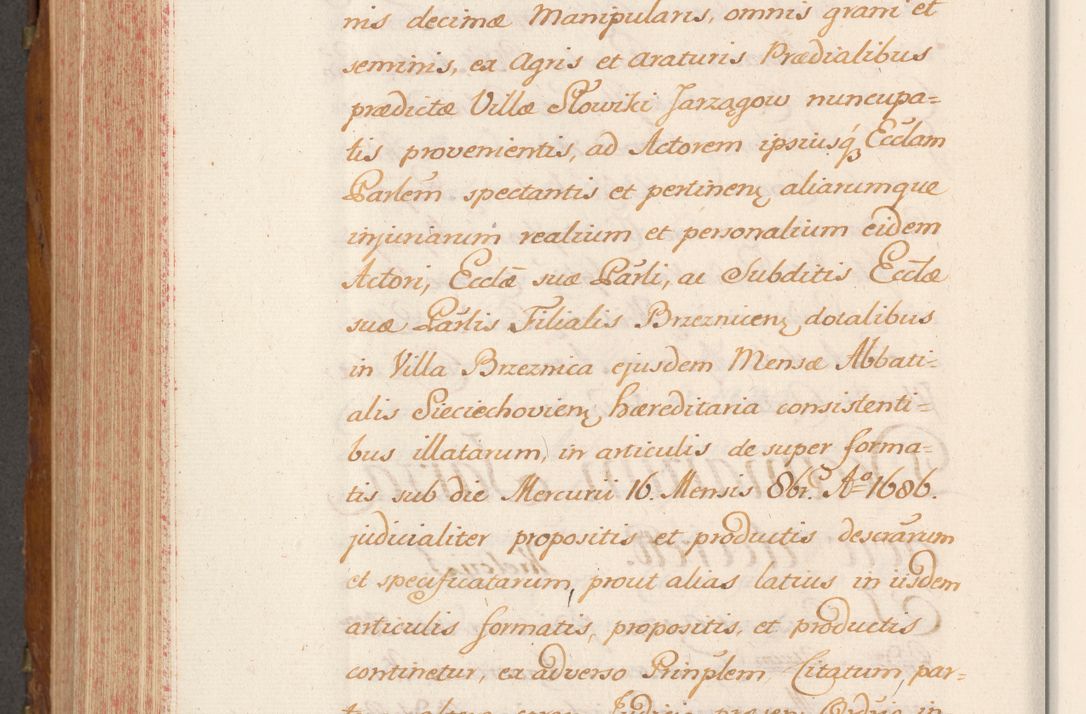 nis decimæ Manipularis, omnis grani et
seminis, ex Agris et araturis Prædialibus
prædictæ Villæ Słowiki Jarzągow nuncupa=
tis provenientis, ad Actorem ipsiusq́ Ecclam
Parlem spectantis et pertinen, aliarumque
injuriarum realium et personalium eidem
Actori, Ecclæ suæ Parli, ac Subditis Ecclæ
suæ Parlis Filialis Brzeznicen, dotalibus
in Villa Brzeznica ejusdem Mensæ Abbati=
alis Sieciechovien, hæreditaria consistenti=
bus illatarum, in articulis de super forma=
tis sub die Mercurii 16. Mensis 8br. Ao 1686.
judicialiter propositis et productis descrarum
et specificatarum, prout alias latius in iisdem
articulis formatis, propositis, et productis
continetur, ex adverso Prinplem, Citatum, par=
in